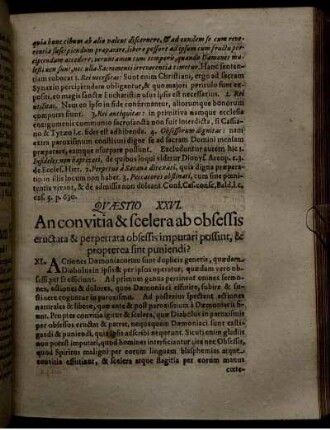 quia hunc cibum ab alio valent discernere, & ad eundem se cum reve-
rentia suscipiendum præparare, libere posset ad ipsum cum fructu per-
cipiendum accedere; servato amen cum tempore, quando Damones
lesti non sunt, nec ulla Sacramenti irreverentia timetur. Hanc senten-
tiam roborat 1. Rei necessitas: Sunt enim Christiani, ergo ad sacram
Synaxin percipiendam obligantur, & quo majori periculo sunt ex-
positi, eo magis sanctæ Eucharistiæ usus ipsis est necessarius. 2. Rei
utilitas, Nam ea ipsi in fide confirmantur, aliorumque bonorum
compotes fiunt. 3. Rei antiquitas: in primitiva namque ecclesia
energumenis communio sacrosancta non fuit interdicta, si Cassia-
no & fides est adhibenda. 4. Obsessorum dignitas: nam
extra paroxismum constituti digne se ad sacram Domini mensam
præparare, eamque usurpare possunt. Excluduntur autem hic 1.
Infideles non baptizati, de quibus loqui videtur Dionys. Areop. c.3.
de Eccles. Hier. 2. Perpetuò à Satana divexati, quia digna præpara-
tio in his locum non habet. 3. Peccatores obstinati, cum sine poeni-
tentia vivant, & de admissis non doleant
p. 630.
QVÆSTIO XXVI.
An convitia & scelera ab obsessis
eructata & perpetrata obsessis imputari possint, &
propterea sint puniendi?
XI. Actiones Dæmoniacorum sunt duplicis generis, quædam
Diabolus in ipsis & per ipsos operatur; quædam vero ob-
sessi per se efficiunt. Ad primum genus pertinent omnes sermo-
nes, actiones & dolores, quos Dæmoniaci efficere, subire & su-
stinere coguntur in paroxismo. Ad posterius spectant actiones
naturales & liberæ, quæ ante & post paroxismum à Dæmoniacis fi-
unt. Propter convitia igitur & scelera, quæ Diabolus in paroxismis
per obsessos eructat & patrat, nequaquam Dæmoniaci sunt castigandi
& puniendi, quia ipsis ascribi nequeunt. Sicuti enim gladio
non potest imputari, quod homines interficiantur; ita nec Obsessis,
quod Spiritus maligni per eorum linguam blasphemias atque
convitia effutiant, & scelera atque flagitia per eorum manus